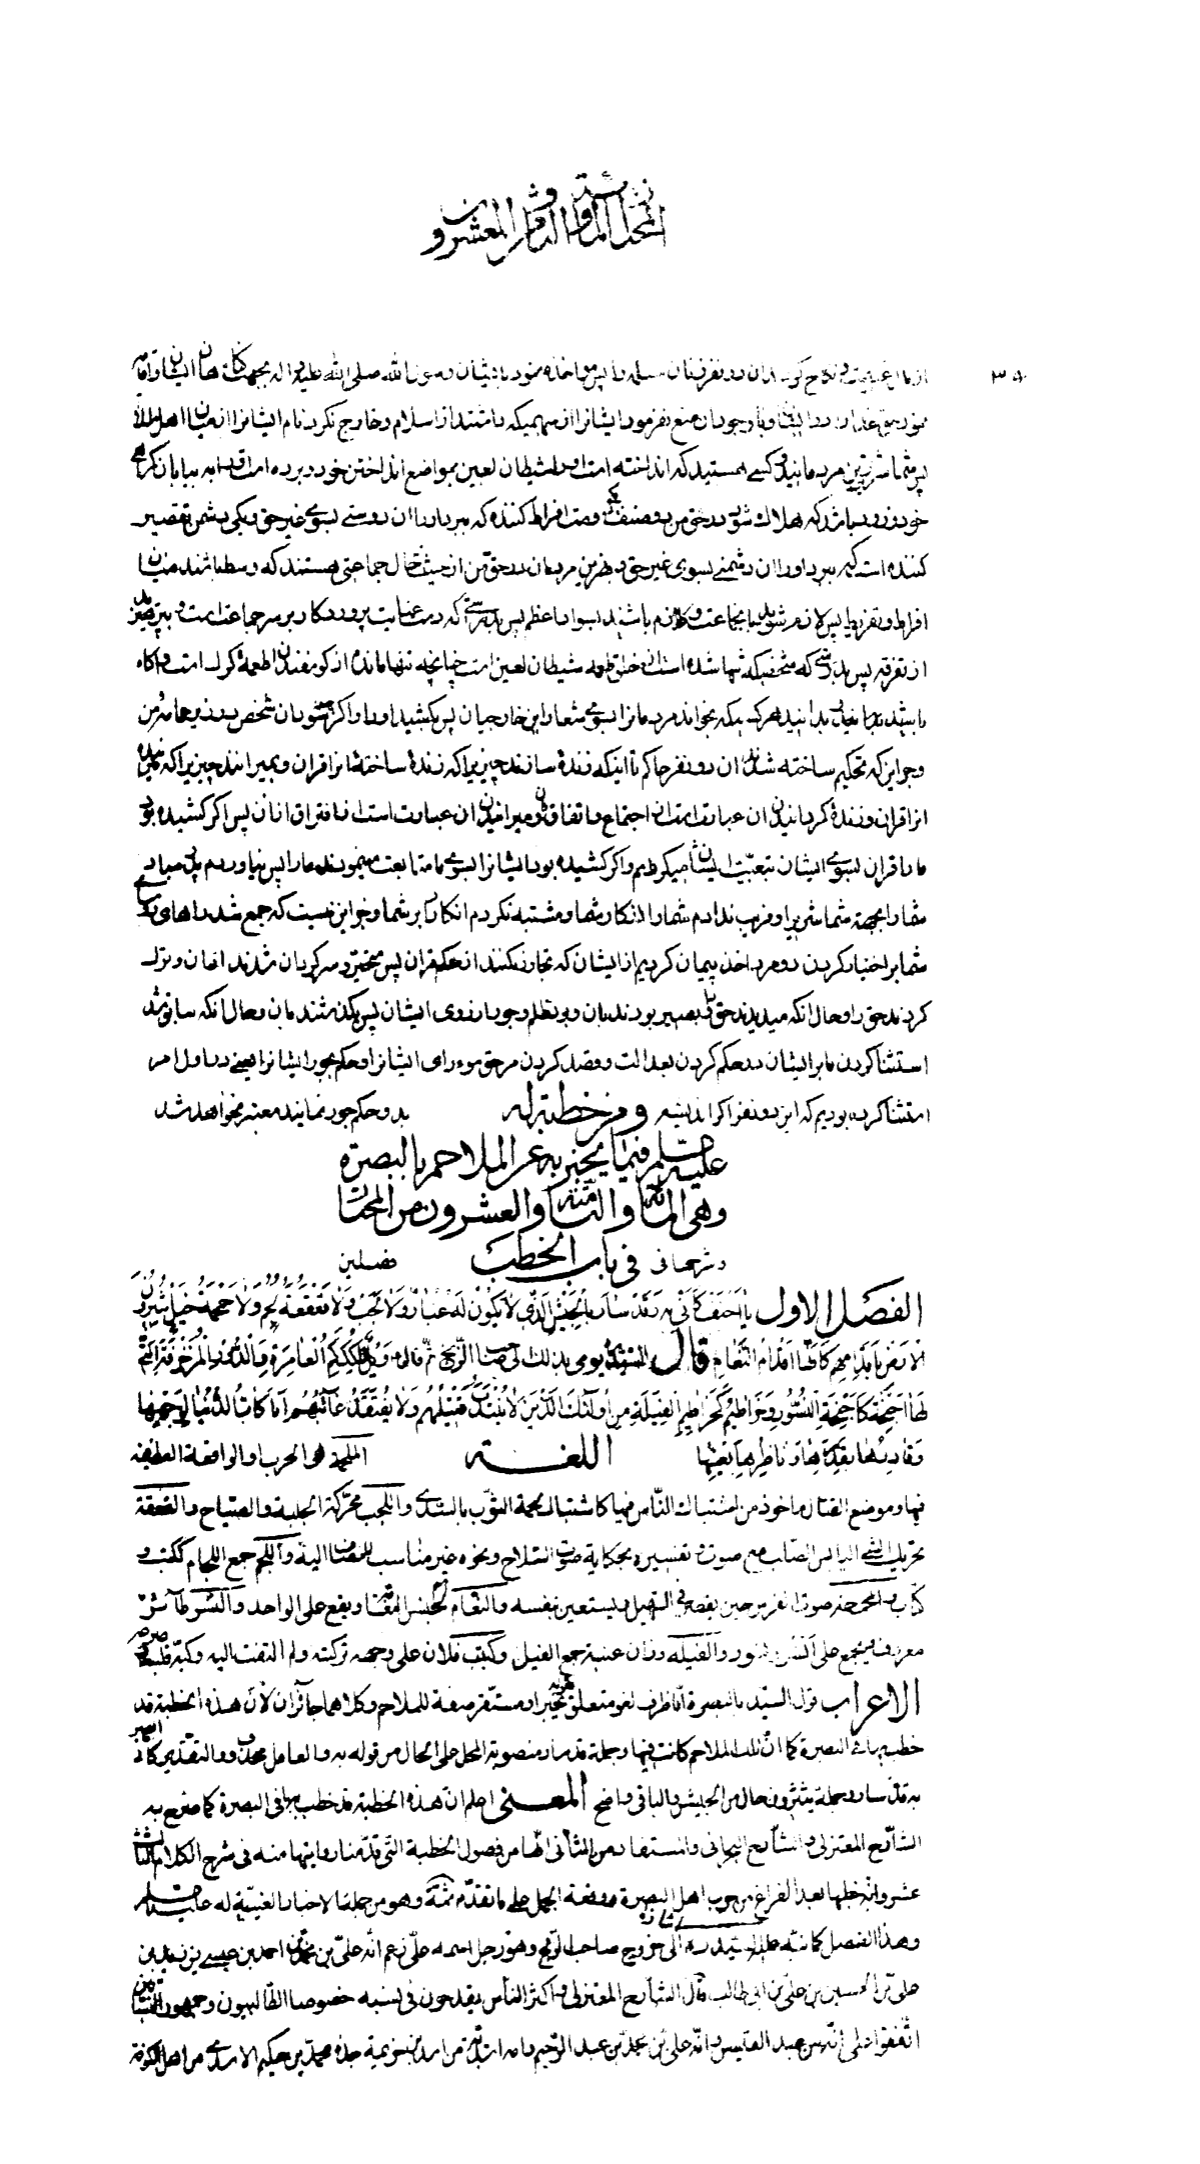 المختار المأة والثامن والعشرون
٣٥
نمود بحق خدا در ايشان و با وجود ان منع نفرمود ايشانرا از سهميكه داشتند از اسلام و خارج نكرد نام ايشانرا از ميان اهل اسلام
پس شما شريرترين مردمانيد و كسى هستيد كه انداخته است او را شيطان لعين بمواضع انداختن خود و برده است او را به بيابان گمراهى
خود و زود باشد كه هلاك شود در حق من دو صنف يكى دوست افراط كننده كه ببرد او را ان دوستى بسوى غير حق و يكى دشمن تقصير
كننده است كه ببرد او را ان دشمنى بسوى غير حق و بهترين مردمان در حق من از حيثيت حال جماعتى هستند كه وسط باشند ميان
افراط و تفريط پس لازم شويد بانجماعت و ملازم باشيد بسواد اعظم پس بدرستى كه دست عنايت پروردگار بر سر جماعت است و بپرهيزيد
از تفرقه پس بدرستى كه شخصيكه تنها شده است از خلق طعمه شيطان لعين است چنانچه تنها مانده از گوسفندان طعمۀ گرك است و اگاه
باشيد بدانيد هر كسيكه بخواند مردمانرا بسوى شعار اين خارجيان پس بكشيد او را و اگر چه بود ان شخص در زير عمامۀ من
و جز اين كه تحكيم ساخته شدند ان دو نفر حاكم تا اينكه زنده سازند چيزيرا كه زندۀ ساخته انرا قران و بميرانند چيزيرا كه ميرانيده
انرا قران و زنده گردانيدن ان عبارتست از اجتماع و اتفاق بان و ميرانيدن ان عبارت است از افتراق از ان پس اگر كشيده بود
ما را قران بسوى ايشان تبعيت ايشان ميكرديم و اگر كشيده بود ايشانرا بسوى ما متابعت مينمودند ما را پس نياوردم پدر مباد
شما را بجهة شما شريرا و فريب ندادم شما را از كار شما و مشتبه نكردم انكار را بر شما و جز اين نيست كه جمع شد راهاى رؤساى
شما بر اختيار كردن دو مرد اخذ پيمان كرديم از ايشان كه تجاوز نكنند از حكم قران پس متحير و سرگردان شدند از ان و ترك
كردند حق را و حال انكه ميديدند حق را بصير بودند بان و بود ظلم و جور ارزوى ايشان پس گذشتند بان و حال انكه سابق شد
استثنا كردن ما بر ايشان در حكم كردن بعدالت و قصد كردن مر حق سوء راى ايشانرا و حكم جور ايشانرا يعنى در اول امر
استثنا كرده بوديم كه اين دو نفر اگر انديشه بد و حكم جور نمايند معتبر نخواهد شد ومن خطبة له
عليه السلام فيما يخبر به عن الملاحم بالبصرة
وهى المأة والثامنة والعشرون من المختار
فى باب الخطب وشرحها فى فصلين
الفصل الاول يا احنف كانى به وقد سار بالجيش الذى لا يكون له غبار ولا لجب ولا قعقعة لجم ولا حمحمة خيل يثيرون
الارض باقدامهم كانها اقدام النعام قال السيد ره يومى بذلك الى صاحب الزنج ثم قال ويل لسكككم العامرة والدور المزخرفة التى
لها اجنحة كاجنحة النسور وخراطيم كخراطيم الفيلة من اولئك الذين لا يندب قتيلهم ولا يفتقد غائبهم انا كاب الدنيا لوجهها
وقادرها بقدرها وناظرها بعينها اللغة الملحمة هو الحرب او الواقعة العظيمة
فيها وموضع القتال ماخوذ من اشتباك الناس فيها كاشتباك لحمة الثوب بالسدى واللجب محركة الجلبة والصياح والقعقعة
تحريك الشئ اليابس الصلب مع صوت وتفسيره بحكاية صوت السلاح ونحوه غير مناسب للمضاف اليه واللجم جمع اللجام ككتب و
كتاب والحمحمة صوت الفرس حين يقصر فى الصهيل ويستعين بنفسه والنعام اسم لجنس النعامة ويقع على الواحد والنسر طائر
معروف ويجمع على انسر ونسور والفيلة وزان عنبة جمع الفيل وكببت فلان على وجهه تركته ولم التفت اليه وكبه قلبه وصرعه
الاعراب قول السيد بالبصرة اما ظرف لغو متعلق بيخبر او مستقر صفة للملاحم وكلاهما جائزان لان هذه الخطبة قد
خطب بها فى البصرة كما ان تلك الملاحم كانت فيها وجملة قد سار منصوبة المحل على الحال من قوله به والعامل محذوف والتقدير كانى ابصر
به قد سار وجملة يثيرون حال من الجيش والباقى واضح المعنى اعلم ان هذه الخطبة قد خطب بها فى البصرة كما صرح به
الشارح المعتزلى والشارح البحرانى والمستفاد من الثانى انها من فصول الخطبة التى قدمنا روايتها منه فى شرح الكلام الثالث
عشر وانه خطبها بعد الفراغ من حرب اهل البصرة ووقعة الجمل على ما تقدم ثمة وهو من جملة الاخبار الغيبية له عليه السلام
وهذا الفصل كما نبه عليه السيد ره اشارة الى خروج صاحب الزنج وهو رجل اسمه على زعم انه على بن محمد بن احمد بن عيسى بن زيد بن
على بن الحسين بن على بن ابى طالب قال الشارح المعتزلى واكثر الناس يقدحون فى نسبه خصوصا الطالبيون وجمهور النسابين
اتفقوا على انه من عبد القيس وانه على بن محمد بن عبد الرحيم وامه اسدية من اسد بن خزيمة جده محمد بن حكيم الاسدى من اهل الكوفة